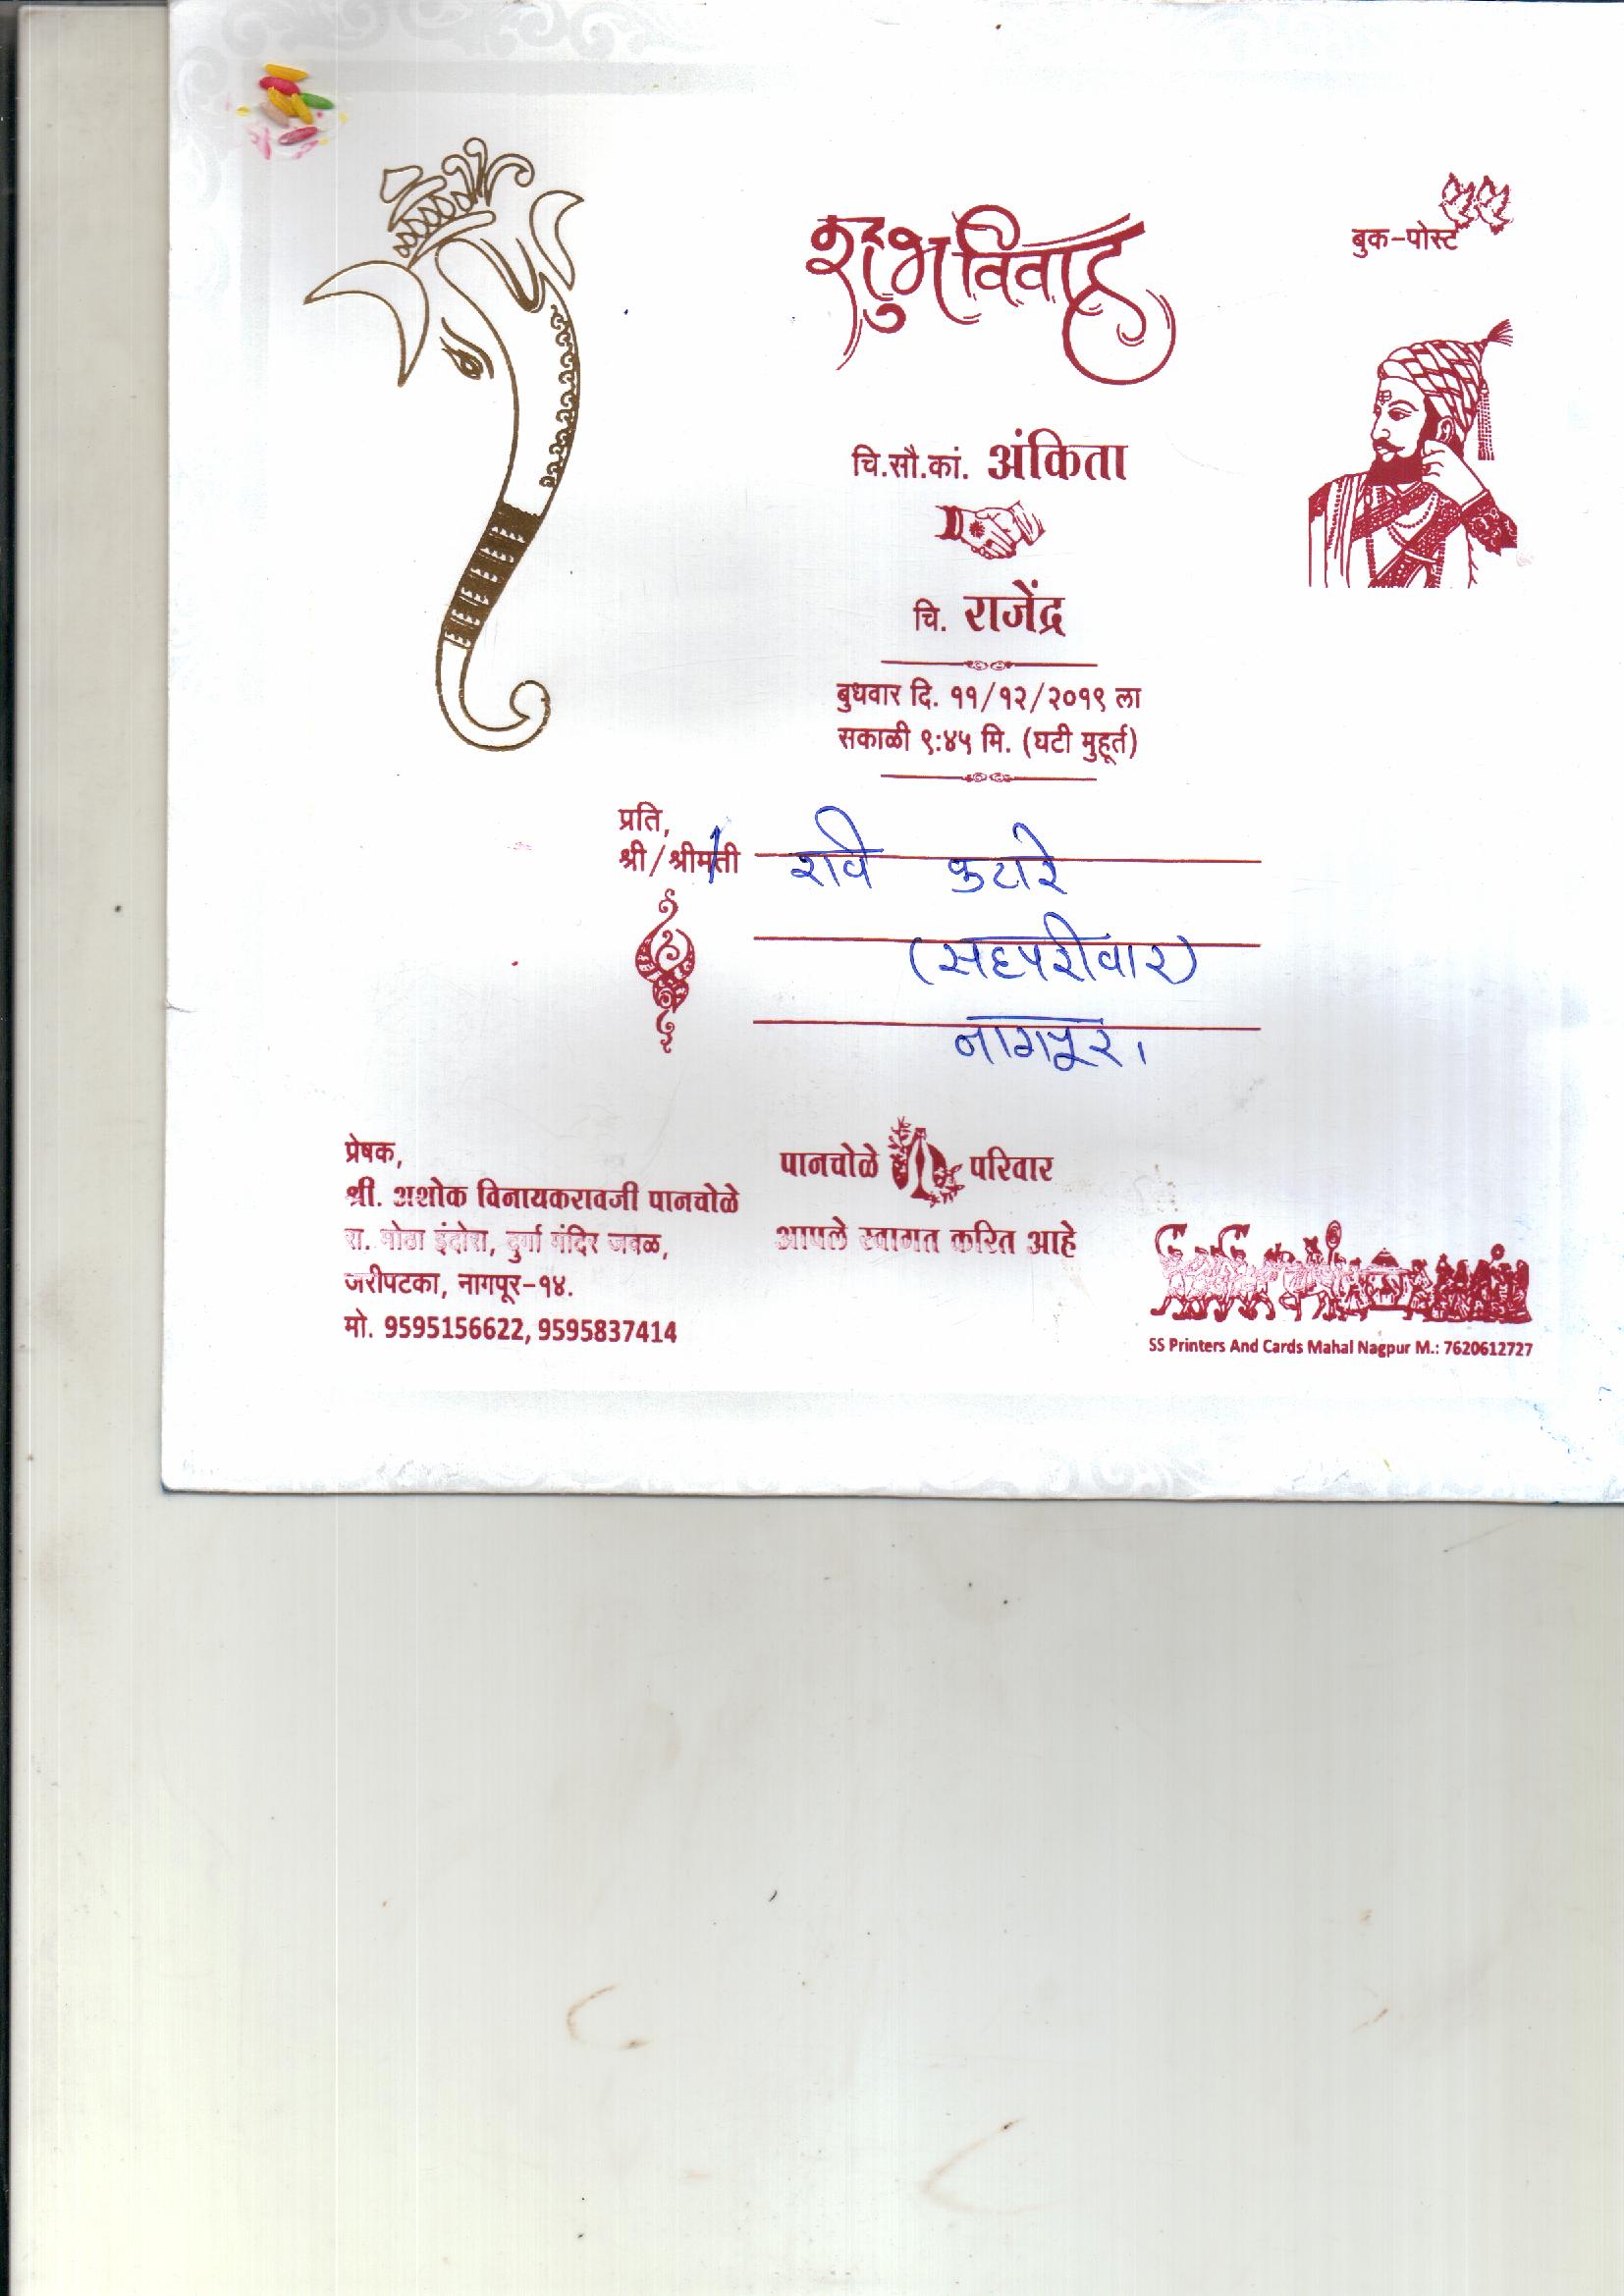 शुभविवाह
बुक-पोस्ट
चि.सौ.कां. अंकिता
चि. राजेंद्र
बुधवार दि. ११/१२/२०१९ ला
सकाळी ९:४५ मि. (घटी मुहूर्त)
प्रति,
श्री/श्रीमती रवि कुटारे
(सहपरीवार)
नागपूर.
प्रेषक,
श्री. अशोक विनायकरावजी पानचोळे
रा. मोठा इंदोरा, दुर्गा मंदिर जवळ,
जरीपटका, नागपूर-१४.
मो. 9595156622, 9595837414
पानचोळे परिवार
आपले स्वागत करित आहे
SS Printers And Cards Mahal Nagpur M.: 7620612727